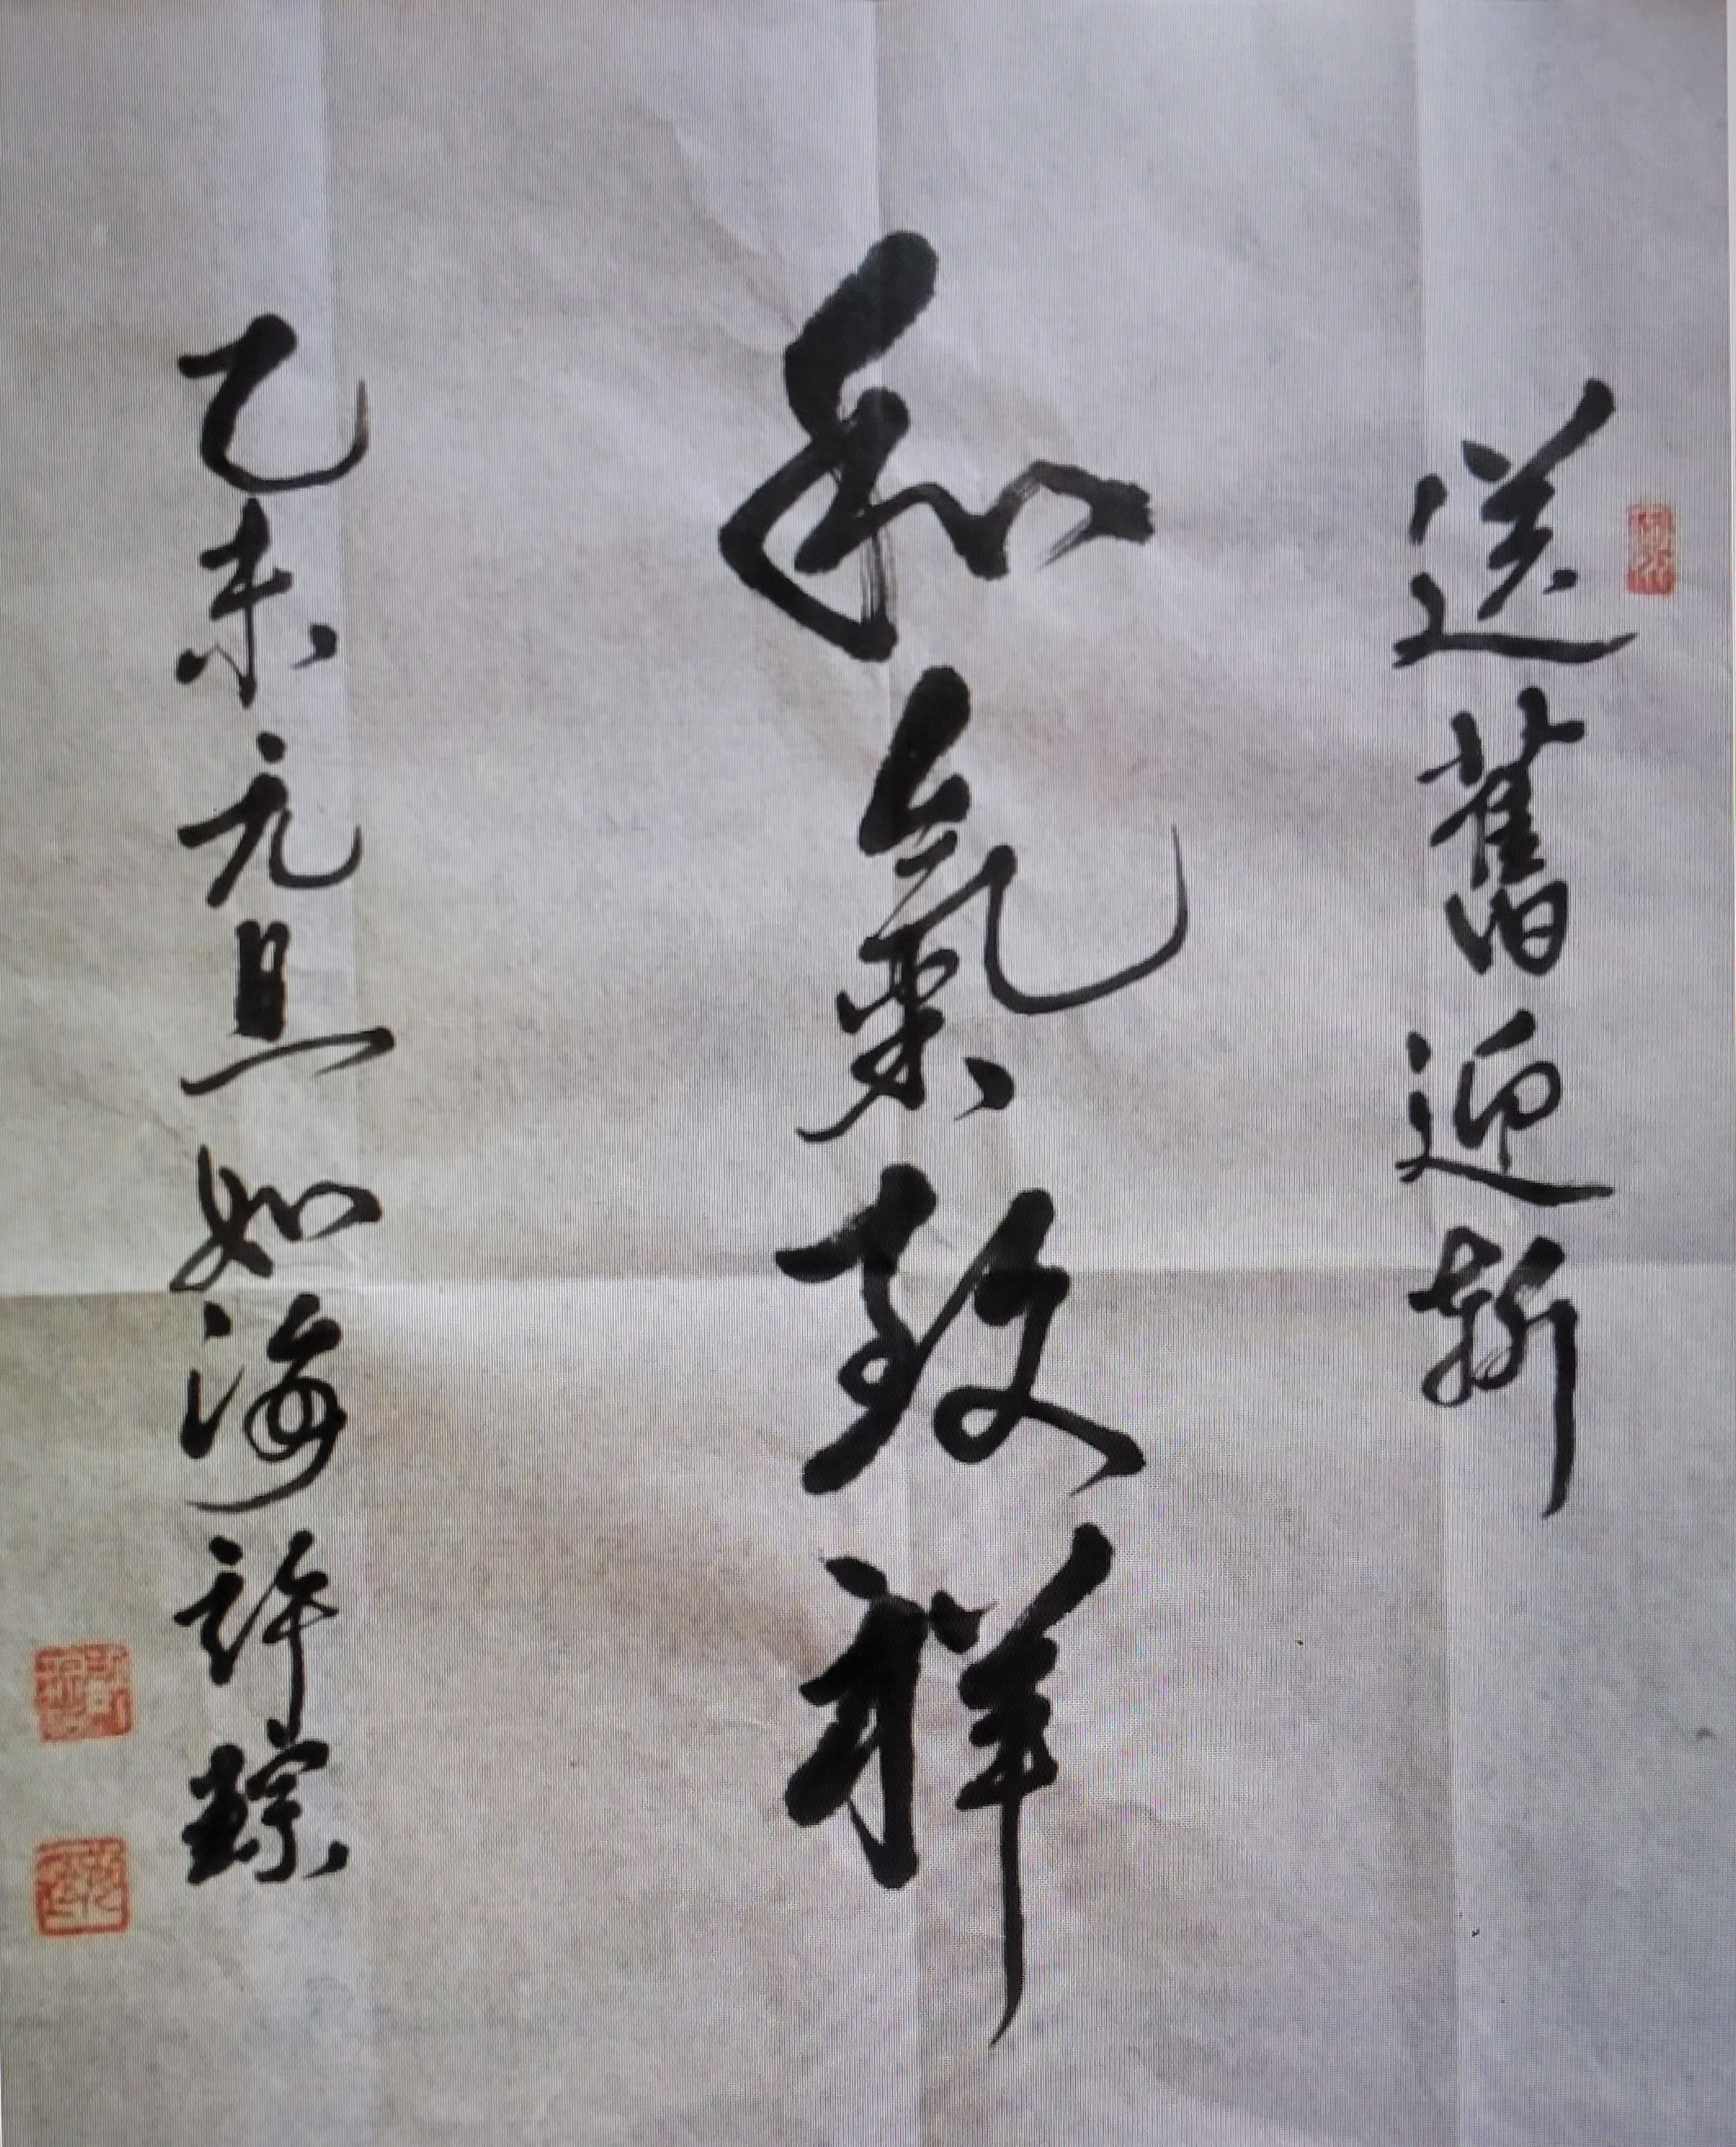 送舊迎新
和氣致祥
乙未元旦如海許踪